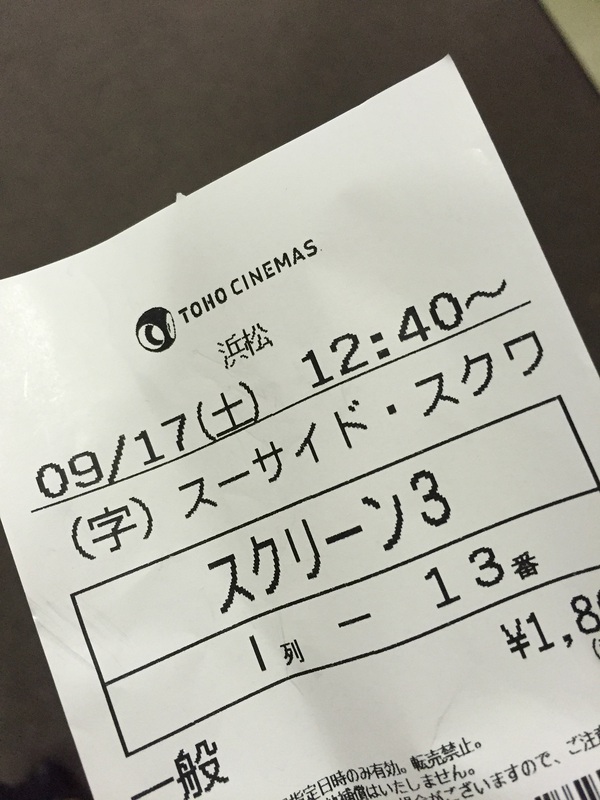 TOHO CINEMAS
浜松
09/17(土) 12:40〜
(字) スーサイド・スクワ
スクリーン3
I列 － 13番
¥1,8
一般
指定日時のみ有効。転売禁止。
補償はいたしません。
がございますので、ご注意